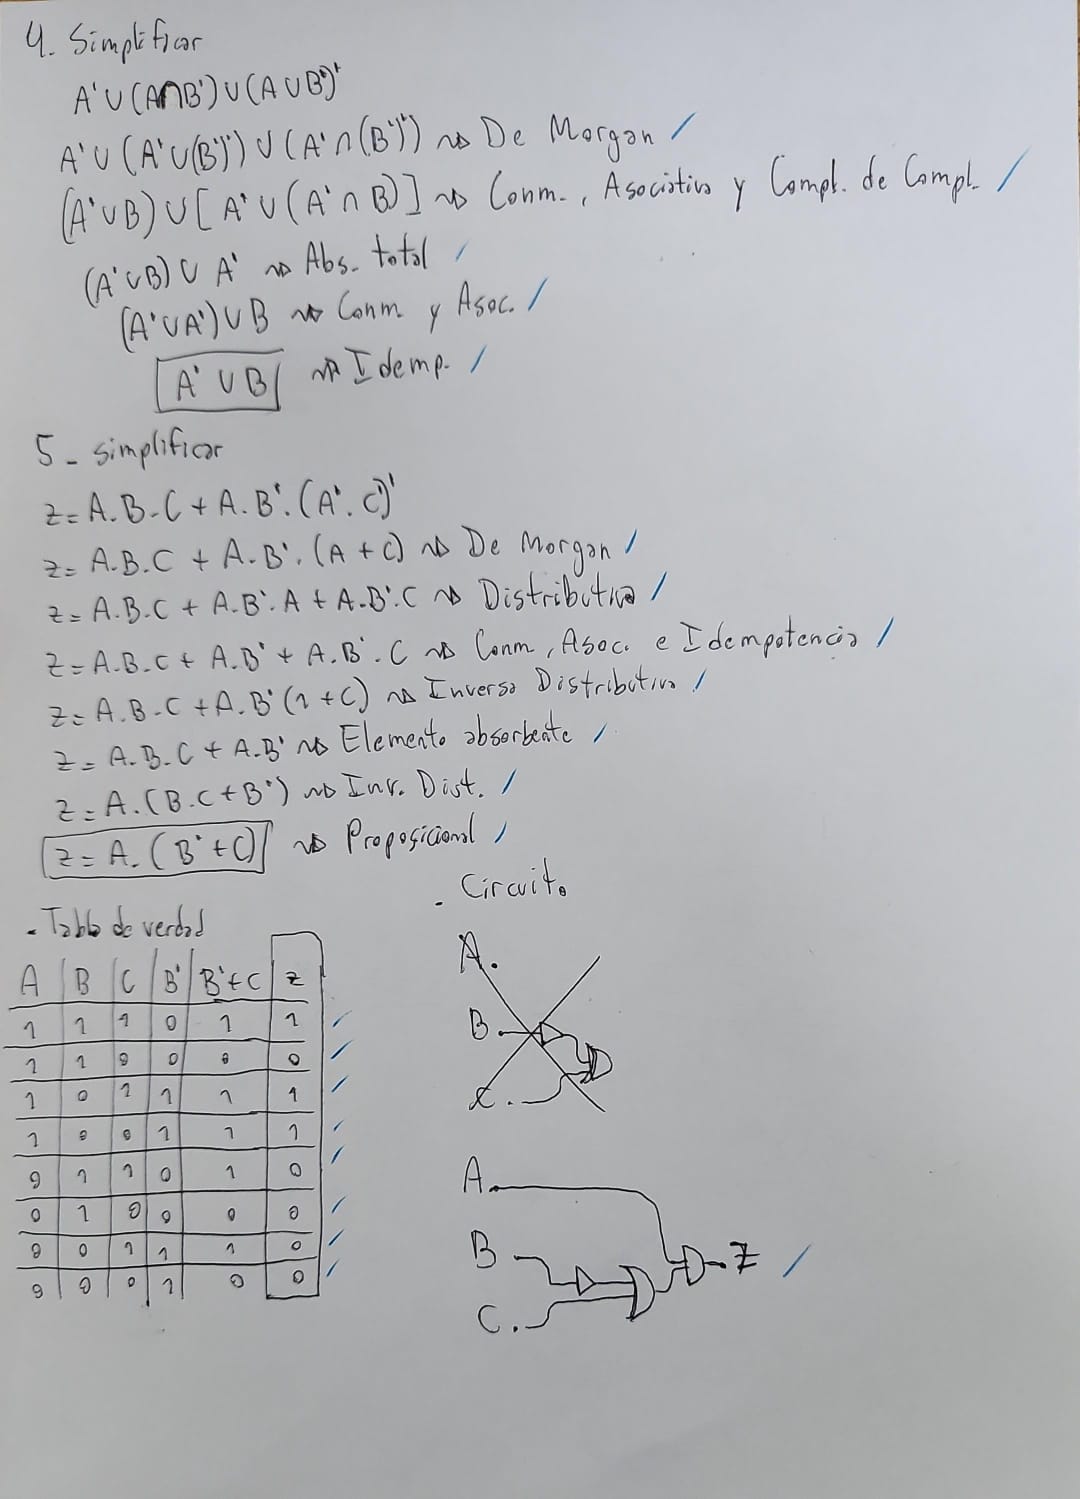 4. Simplificar
A' ∪ (A∩B') ∪ (A ∪ B')'
A' ∪ (A' ∪ (B')') ∪ (A' ∩ (B')') ⇝ De Morgan /
(A' ∪ B) ∪ [A' ∪ (A' ∩ B)] ⇝ Conm., Asociativa y Compl. de Compl. /
(A' ∪ B) ∪ A' ⇝ Abs. total /
(A' ∪ A') ∪ B ⇝ Conm. y Asoc. /
A' ∪ B ⇝ Idemp. /
5- simplificar
z = A.B.C + A.B'.(A'.C')'
z = A.B.C + A.B'.(A + C) ⇝ De Morgan /
z = A.B.C + A.B'.A + A.B'.C ⇝ Distributiva /
z = A.B.C + A.B' + A.B'.C ⇝ Conm, Asoc. e Idempotencia /
z = A.B.C + A.B'(1 + C) ⇝ Inversa Distributiva /
z = A.B.C + A.B' ⇝ Elemento absorbente /
z = A.(B.C + B') ⇝ Inv. Dist. /
z = A.(B' + C) ⇝ Proposicional /
- Tabla de verdad
A | B | C | B' | B'+C | z
1 1 1 0 1 1 /
1 1 0 0 0 0 /
1 0 1 1 1 1 /
1 0 0 1 1 1 /
0 1 1 0 1 0 /
0 1 0 0 0 0 /
0 0 1 1 1 0 /
0 0 0 1 0 0 /
- Circuito
A.
B.
C.
A.
B
C.
Z /